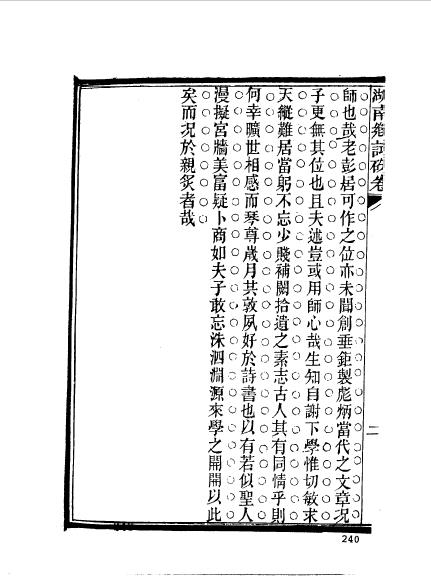 湖南鄉試硃卷
二
師也哉老彭居可作之位亦未聞創垂鉅製彪炳當代之文章况
子更無其位也且夫述豈或用師心哉生知自謝下學惟切敏求
天縱難居當躬不忘少賤補闕拾遺之素志古人其有同情乎則
何幸曠世相感而琴尊歲月其敦夙好於詩書也以有若似聖人
漫擬宮牆美富疑卜商如夫子敢忘洙泗淵源來學之開開以此
矣而况於親炙者哉
240